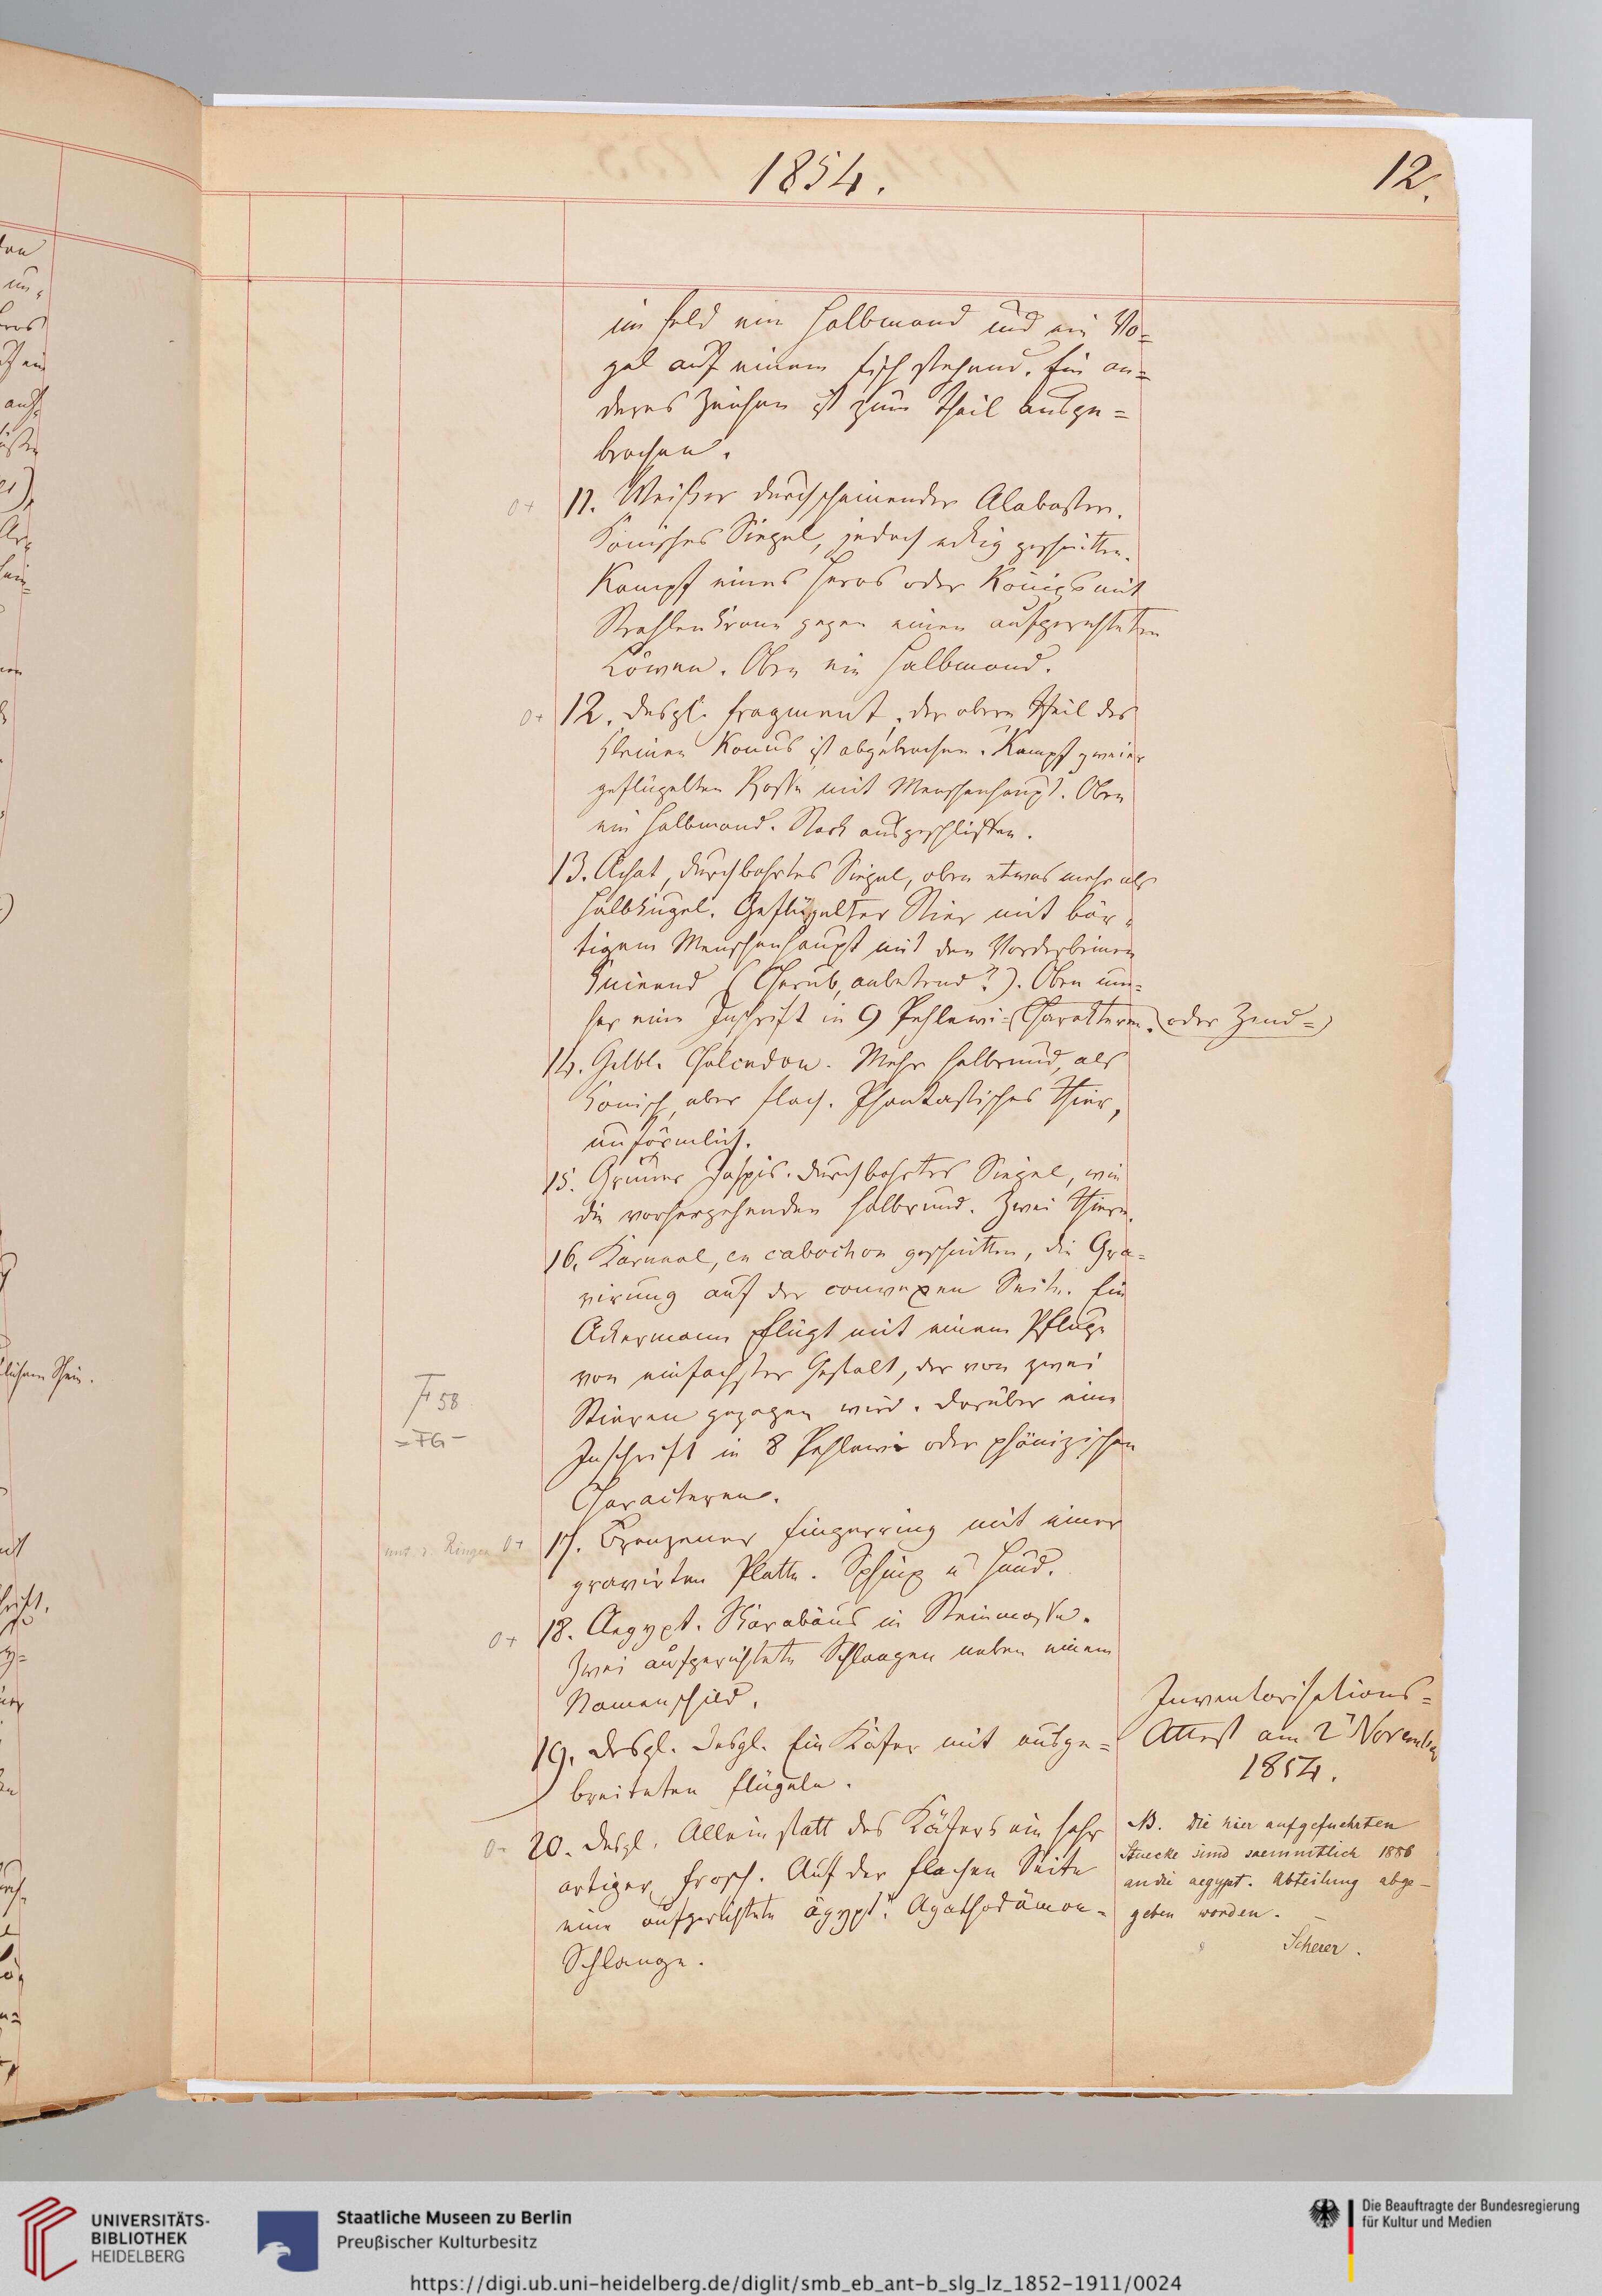 1854.
12.
im Feld ein Halbmond und ein Vo=
gel auf einem Fisch stehend. Ein an=
deres Zeichen ist zum Theil ausge=
brochen.
0+ 11. Weißer durchscheinender Alabaster.
Konisches Siegel, jedoch eckig geschnitten.
Kampf eines Heros oder Königs mit
Strahlenkrone gegen einen aufgerichteten
Löwen. Oben ein Halbmond.
0+ 12. Desgl. Fragment, der obere Theil des
kleinen Konus ist abgebrochen. Kampf zweier
geflügelten Rosse mit Menschenhaupt. Oben
ein Halbmond. Stark ausgeschliffen.
13. Achat, durchbohrtes Siegel, oben etwas mehr als
Halbkugel. Geflügelter Stier mit bär=
tigem Menschenhaupt mit den Vorderbeinen
knieend (Cherub, anbetend?). Oben um=
her eine Inschrift in 9 Pehlewi=(Charakteren. (oder Zend=)
14. Gelbl. Chalcedon. Mehr halbrund, als
konisch, aber flach. Phantastisches Thier,
unförmlich.
15. Grüner Jaspis. Durchbohrtes Siegel, wie
die vorhergehenden halbrund. Zwei Thiere.
16. Karneol, en cabochon geschnitten, die Gra=
virung auf der convexen Seite. Ein
Ackermann pflügt mit einem Pfluge
von einfachster Gestalt, der von zwei
F 58
Stieren gezogen wird. Darüber eine
= FG -
Inschrift in 8 Pehlewi oder phönizischen
Characteren.
Ringen 0+ 17. Bronzener Fingerring mit einer
gravirten Platte. Sphinx u Hund.
0+ 18. Aegypt. Skarabäus in Steinmasse.
Zwei aufgerichtete Schlangen neben einem
Namenschild.
19. Desgl. Desgl. Ein Käfer mit ausge=
breiteten Flügeln.
Inventarisations=
Attest am 2 November
1854.
0- 20. Desgl. Allein statt des Käfers ein sehr
artiger Frosch. Auf der flachen Seite
eine aufgerichtete ägypt. Agathodämon=
Schlange.
NB. Die hier aufgefuehrten
Stuecke sind saemmtlich 1886
an die aegypt. Abteilung abge-
geben worden.
Scherer.
UNIVERSITÄTS-
BIBLIOTHEK
HEIDELBERG
Staatliche Museen zu Berlin
Preußischer Kulturbesitz
Die Beauftragte der Bundesregierung
für Kultur und Medien
https://digi.ub.uni-heidelberg.de/diglit/smb_eb_ant-b_slg_lz_1852-1911/0024